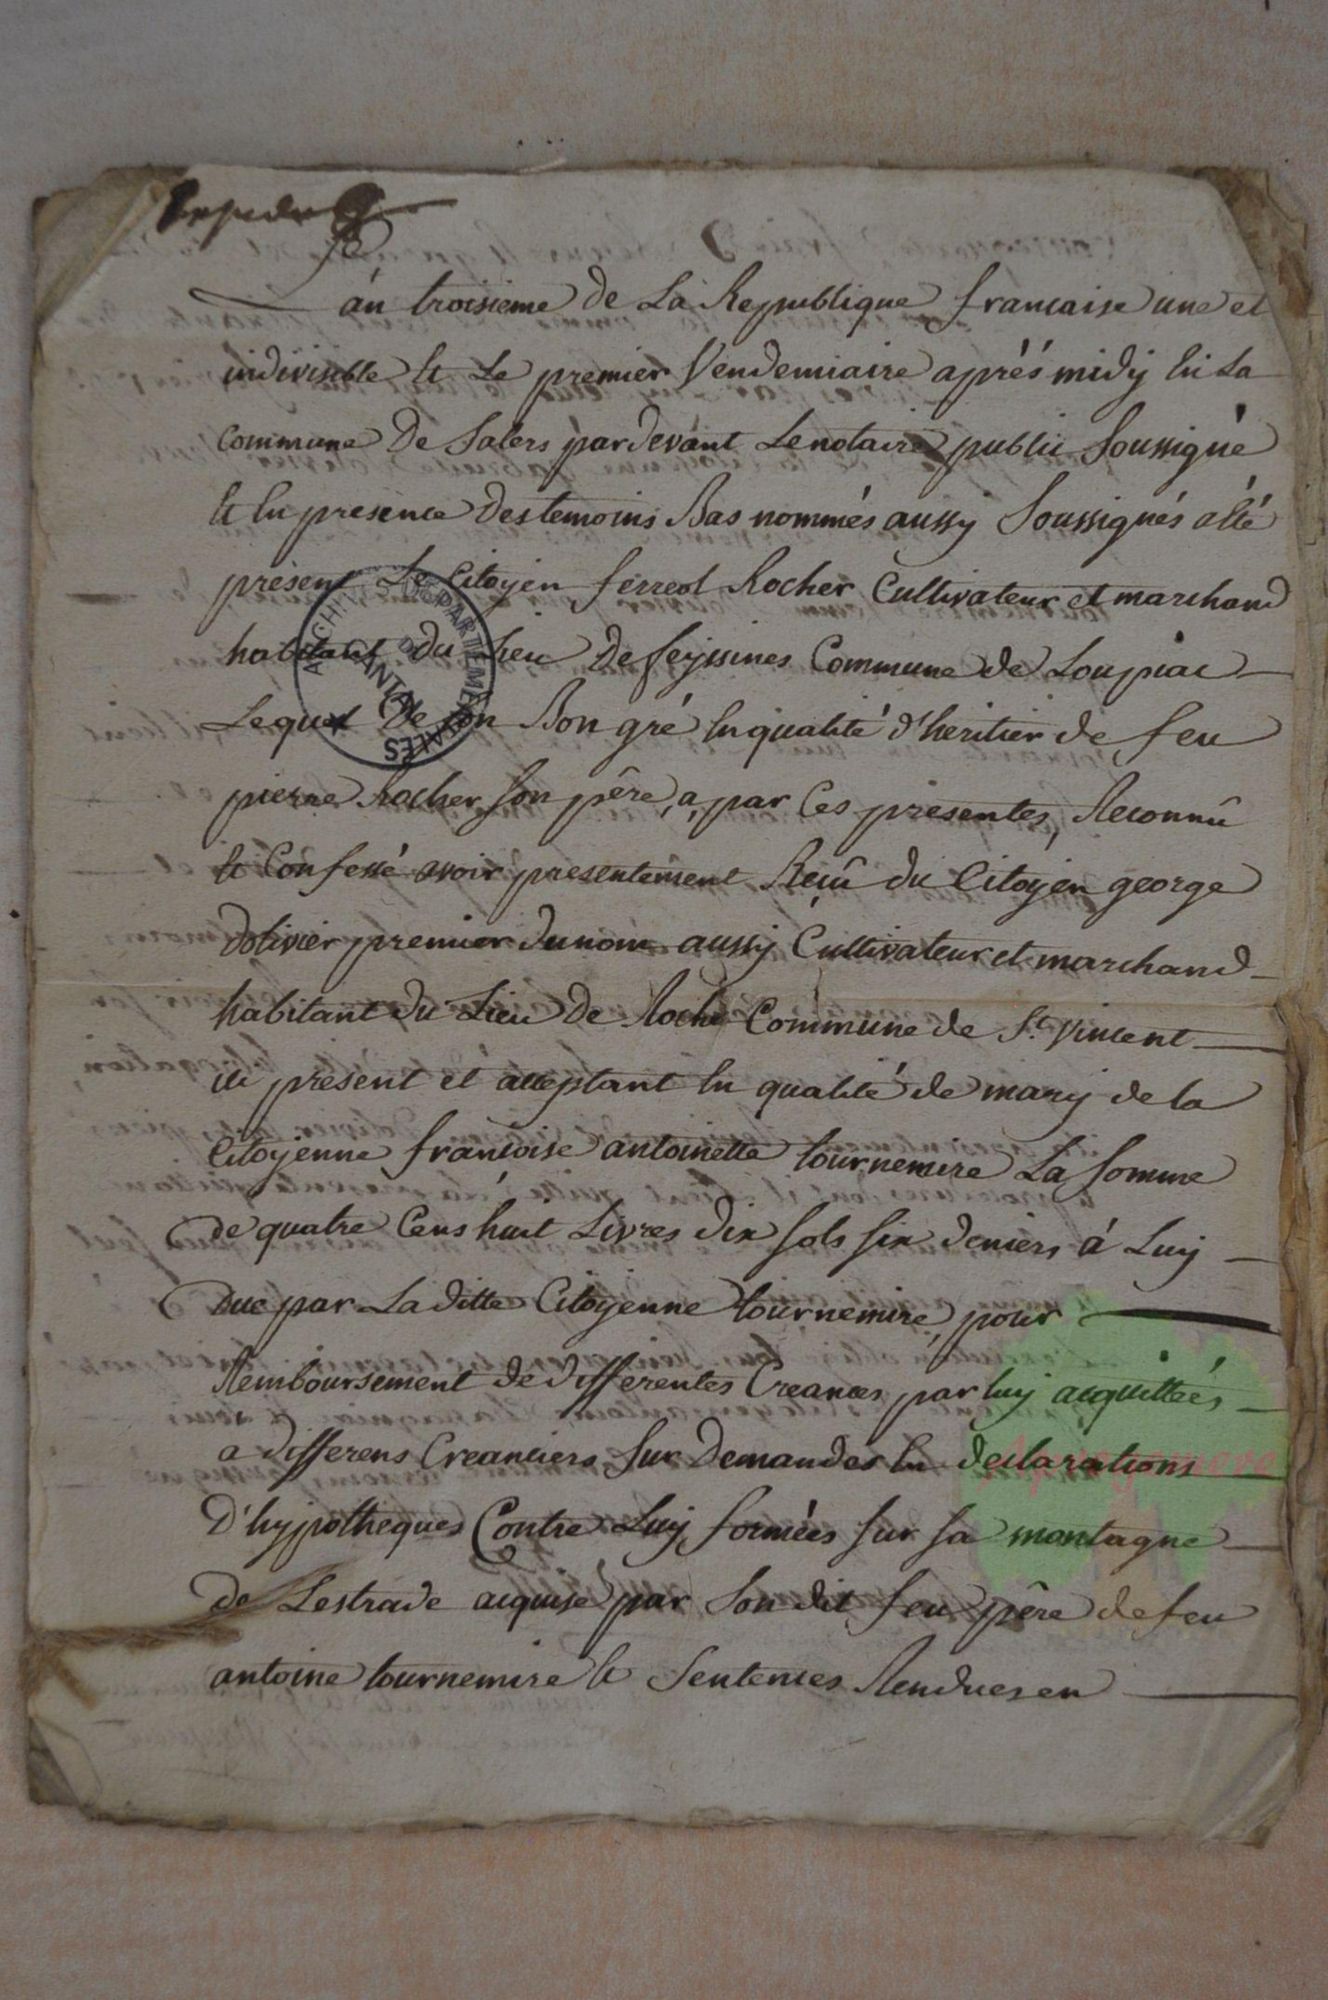 án troisieme de La Republique francaise une et
indivisible et Le premier Vendemiaire aprés midy En La
Commune De Salers pardevant Le notaire public Soussigné
et En presence Des temoins Bas nommés aussy Soussignés à êté
présent Le Citoyen ferreol Rocher Cultivateur et marchand
habitant du Lieu De feyssines Commune de Loupiac
Lequel De son Bon gré En qualité d'heritier de feu
pierre Rocher Son pêre, a, par Ces presentes, Reconnû
et Confessé avoir presentement Reçû du Citoyen george
dolivier premier du nom aussy Cultivateur et marchand
habitant du Lieu De Roche Commune de St. Vincent
ici present et acceptant En qualité de mary de la
Citoyenne francoise antoinette tournemire La Somme
de quatre Cens huit Livres dix Sols Six deniers à Luy
Due par La ditte Citoyenne tournemire, pour
Remboursement de differentes Creances par luy acquittées
a differens Creanciers Sur Demandes En declarations
D'hypotheques Contre Luy formées Sur Sa montagne
de Lestrade acquise par Son dit feu pêre de feu
antoine tournemire et Sentences Rendues en
ARCHIVES DÉPARTEMENTALES
DU CANTAL